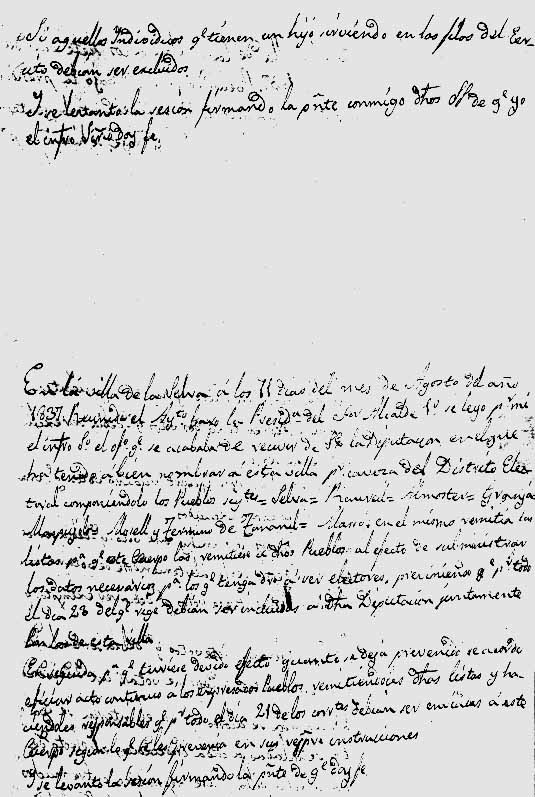 Si aquellos Individuos qe tienen un hijo sirviendo en las filas del Exer-
cito debian ser excluidos
Y se levantó la sesión firmando la pñte conmigo dhos Sres de qe yo
el infro Srio doy fe
En la villa de la Selva á los 11 dias del mes de Agosto del año
1837 Reunido el Ayto baxo la Presida del Sor Alcalde 1º se leyo pr mi
el infro Sº el ofº qe se acababa de recivir de la Diputacion en el que
ha tenido a bien nombrar á esta villa pr cavera del Distrito Elec-
toral componiendolo los Pueblos Selva = Almoster =
Morell y Termino de = Maso: en el mismo remitia las
listas pa qe este Cuerpo las remitiese á dhos Pueblos al efecto de subministrar
los datos necesarios pa los qe tenga dro á ser electores, qe pr todo
el dia 23 del qe rige debian ser incluidas á dha Deputacion juntamente
con las de esta villa
En seguida pa qe tuviese devido efecto quanto se deja prevenido se acordó
oficiar acto continuo á los expresados Pueblos, remitiendoles dhas listas y ha-
ciendoles responsables qe pr todo el dia 21 de los corrtes debian ser á este
Cuerpo segun se les prevenia en sus instrucciones
Y se levantó la sesion firmando la pñte de qe doy fe